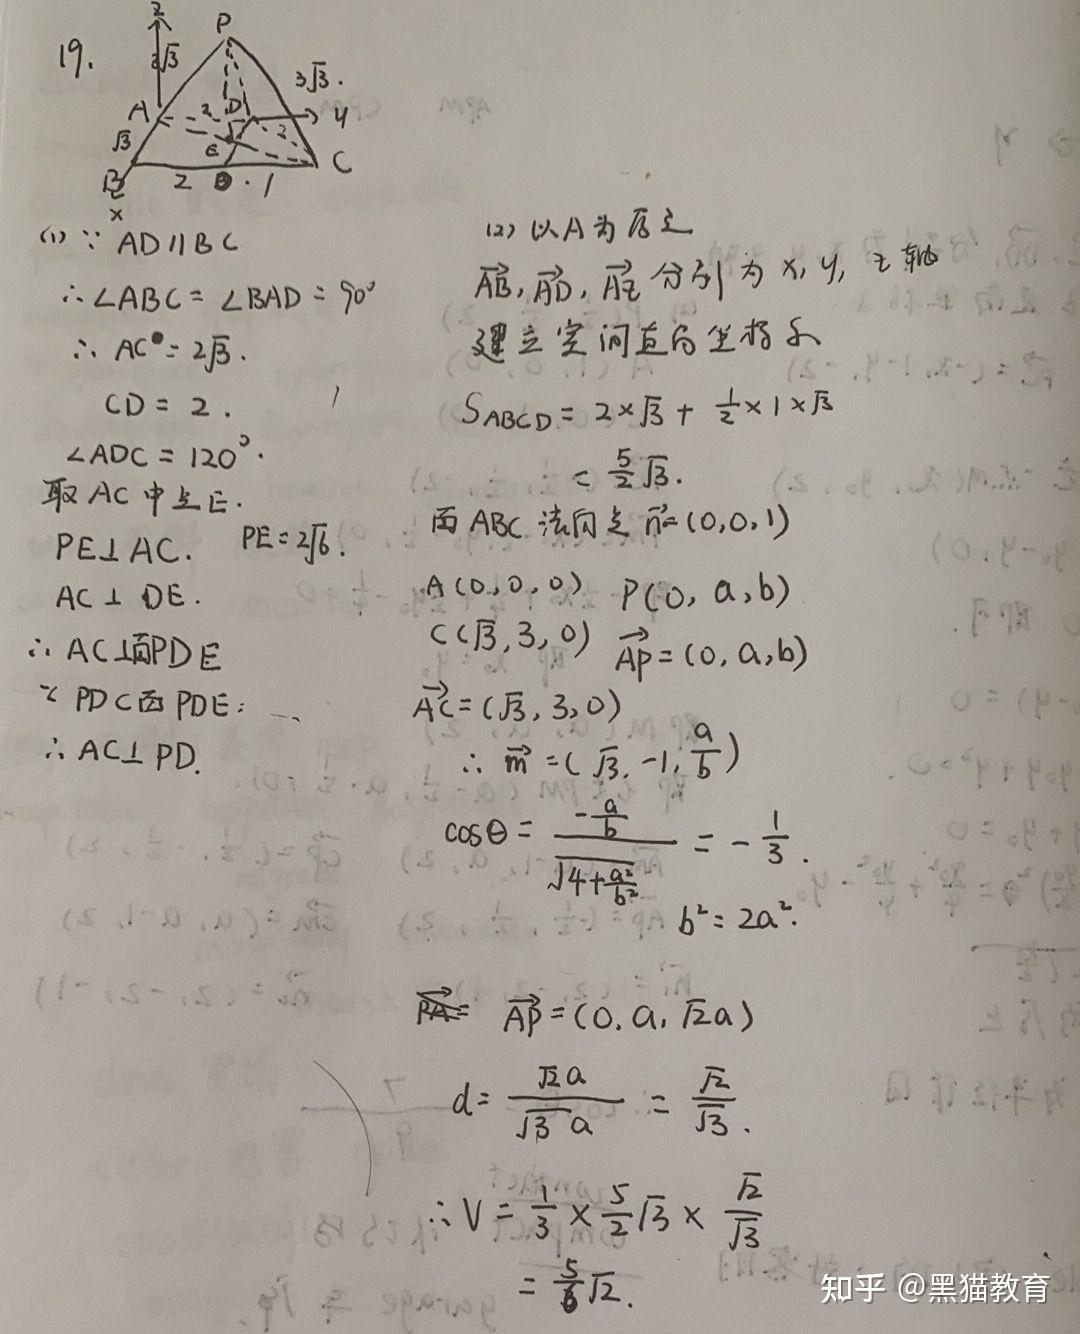 19.
z
P
2√3
3√3.
A
2
D
y
√3
E
2
C
B
2
1
x
(1) ∵ AD∥BC
∴∠ABC=∠BAD=90°
∴ AC=2√3.
CD=2.
∠ADC=120°.
取AC中点E.
PE⊥AC. PE=2√6.
AC⊥DE.
∴AC⊥面PDE
∵PD⊂面PDE.
∴AC⊥PD.
(2) 以A为原点
AB→, AD→, AZ→ 分别为 x, y, z 轴
建立空间直角坐标系
S_ABCD = 2×√3 + 1/2×1×√3
= 5/2√3.
面ABC法向量 n→=(0,0,1)
A(0,0,0) P(0,a,b)
C(√3,3,0) AP→=(0,a,b)
AC→=(√3,3,0)
∴ m→=(√3,-1,a/b)
cosθ = (-a/b)/√(4+a²/b²) = -1/3.
b²=2a².
AP→=(0,a,√2a)
d= √2a/√3a = √2/√3.
∴V= 1/3 × 5/2√3 × √2/√3
= 5/6√2.
知乎 @黑猫教育